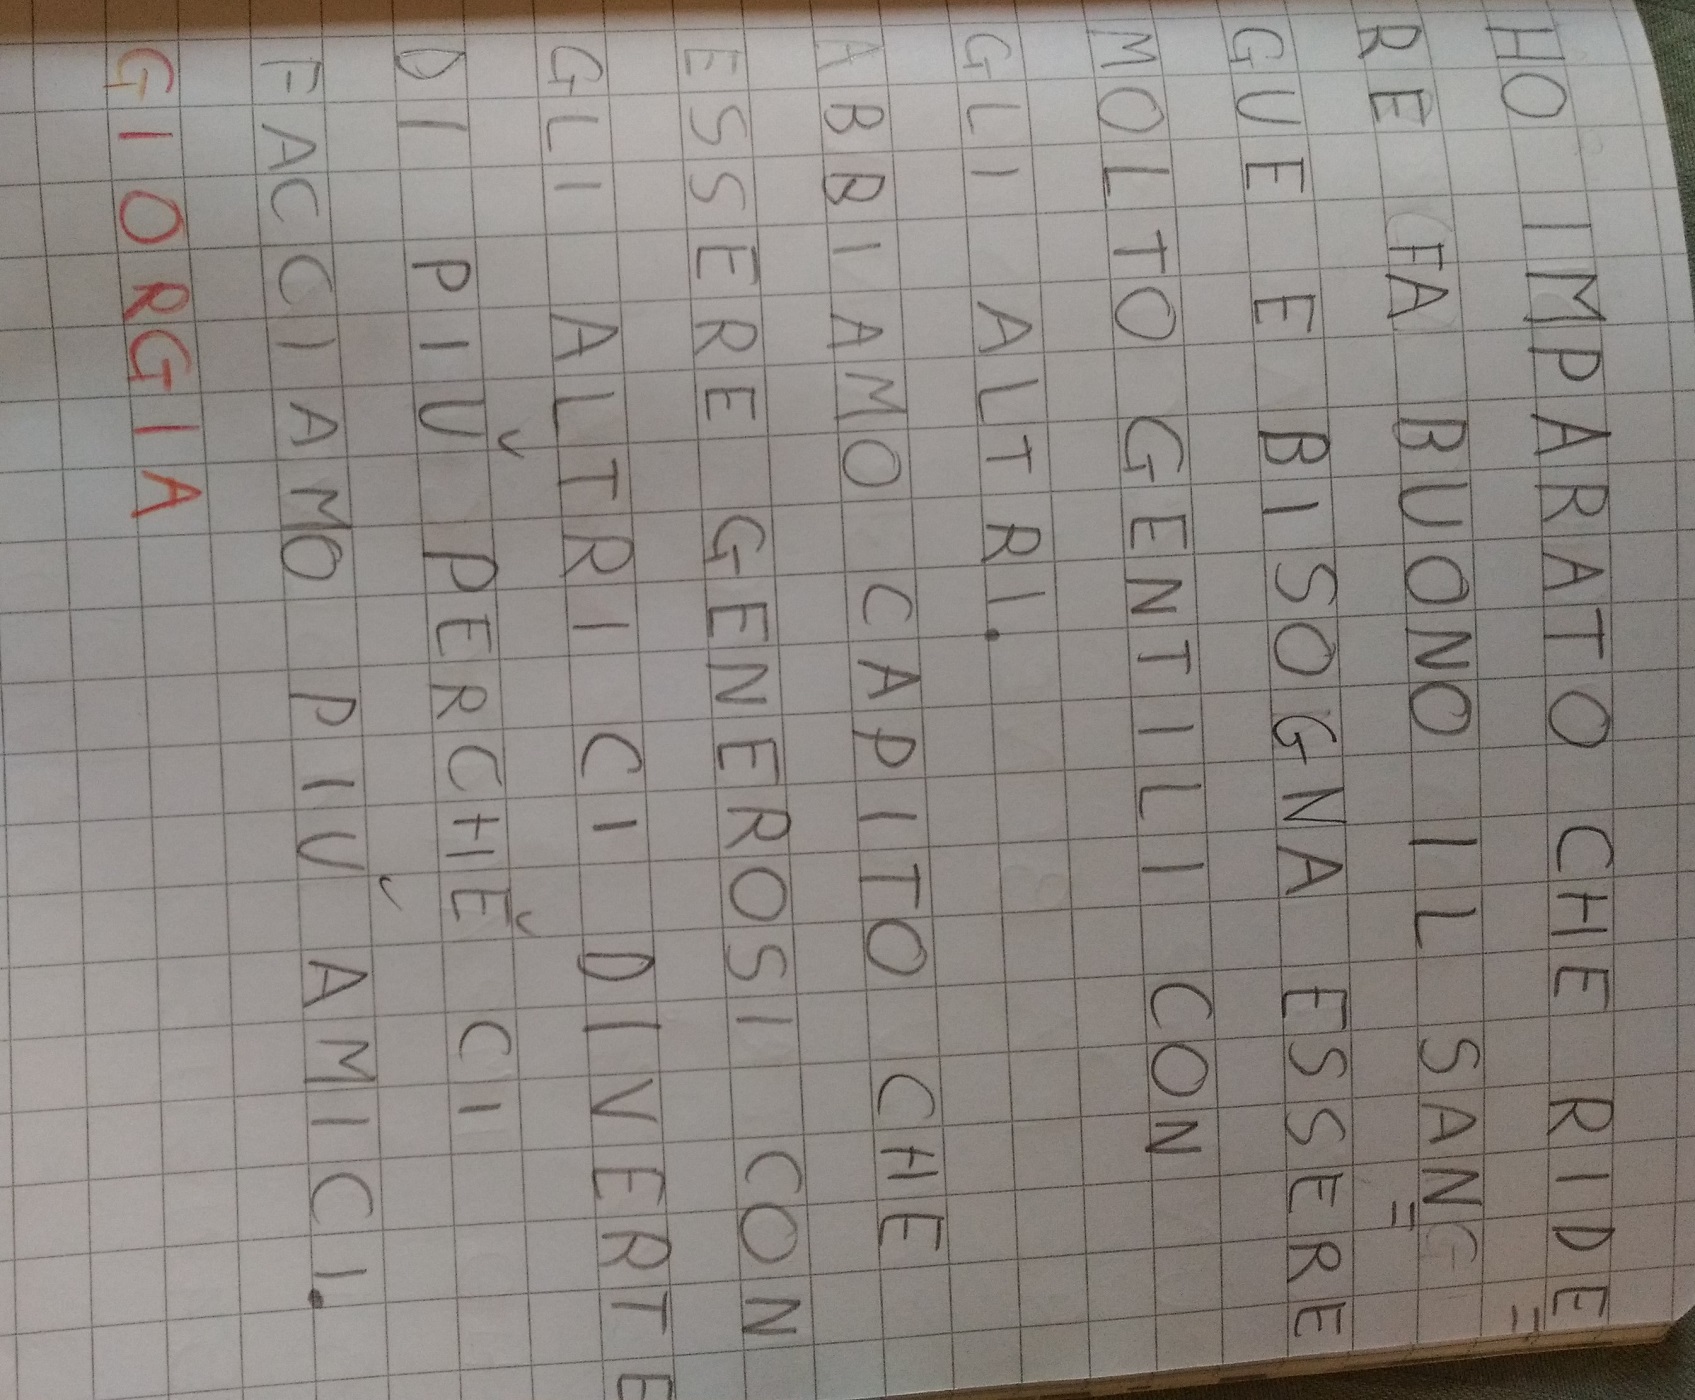 HO IMPARATO CHE RIDE=
RE FA BUONO IL SANG=
GUE E BISOGNA ESSERE
MOLTO GENTILI CON
GLI ALTRI.
ABBIAMO CAPITO CHE
ESSERE GENEROSI CON
GLI ALTRI CI DIVERTE
DI PIÙ PERCHÈ CI
FACCIAMO PIÙ AMICI.
GIORGIA